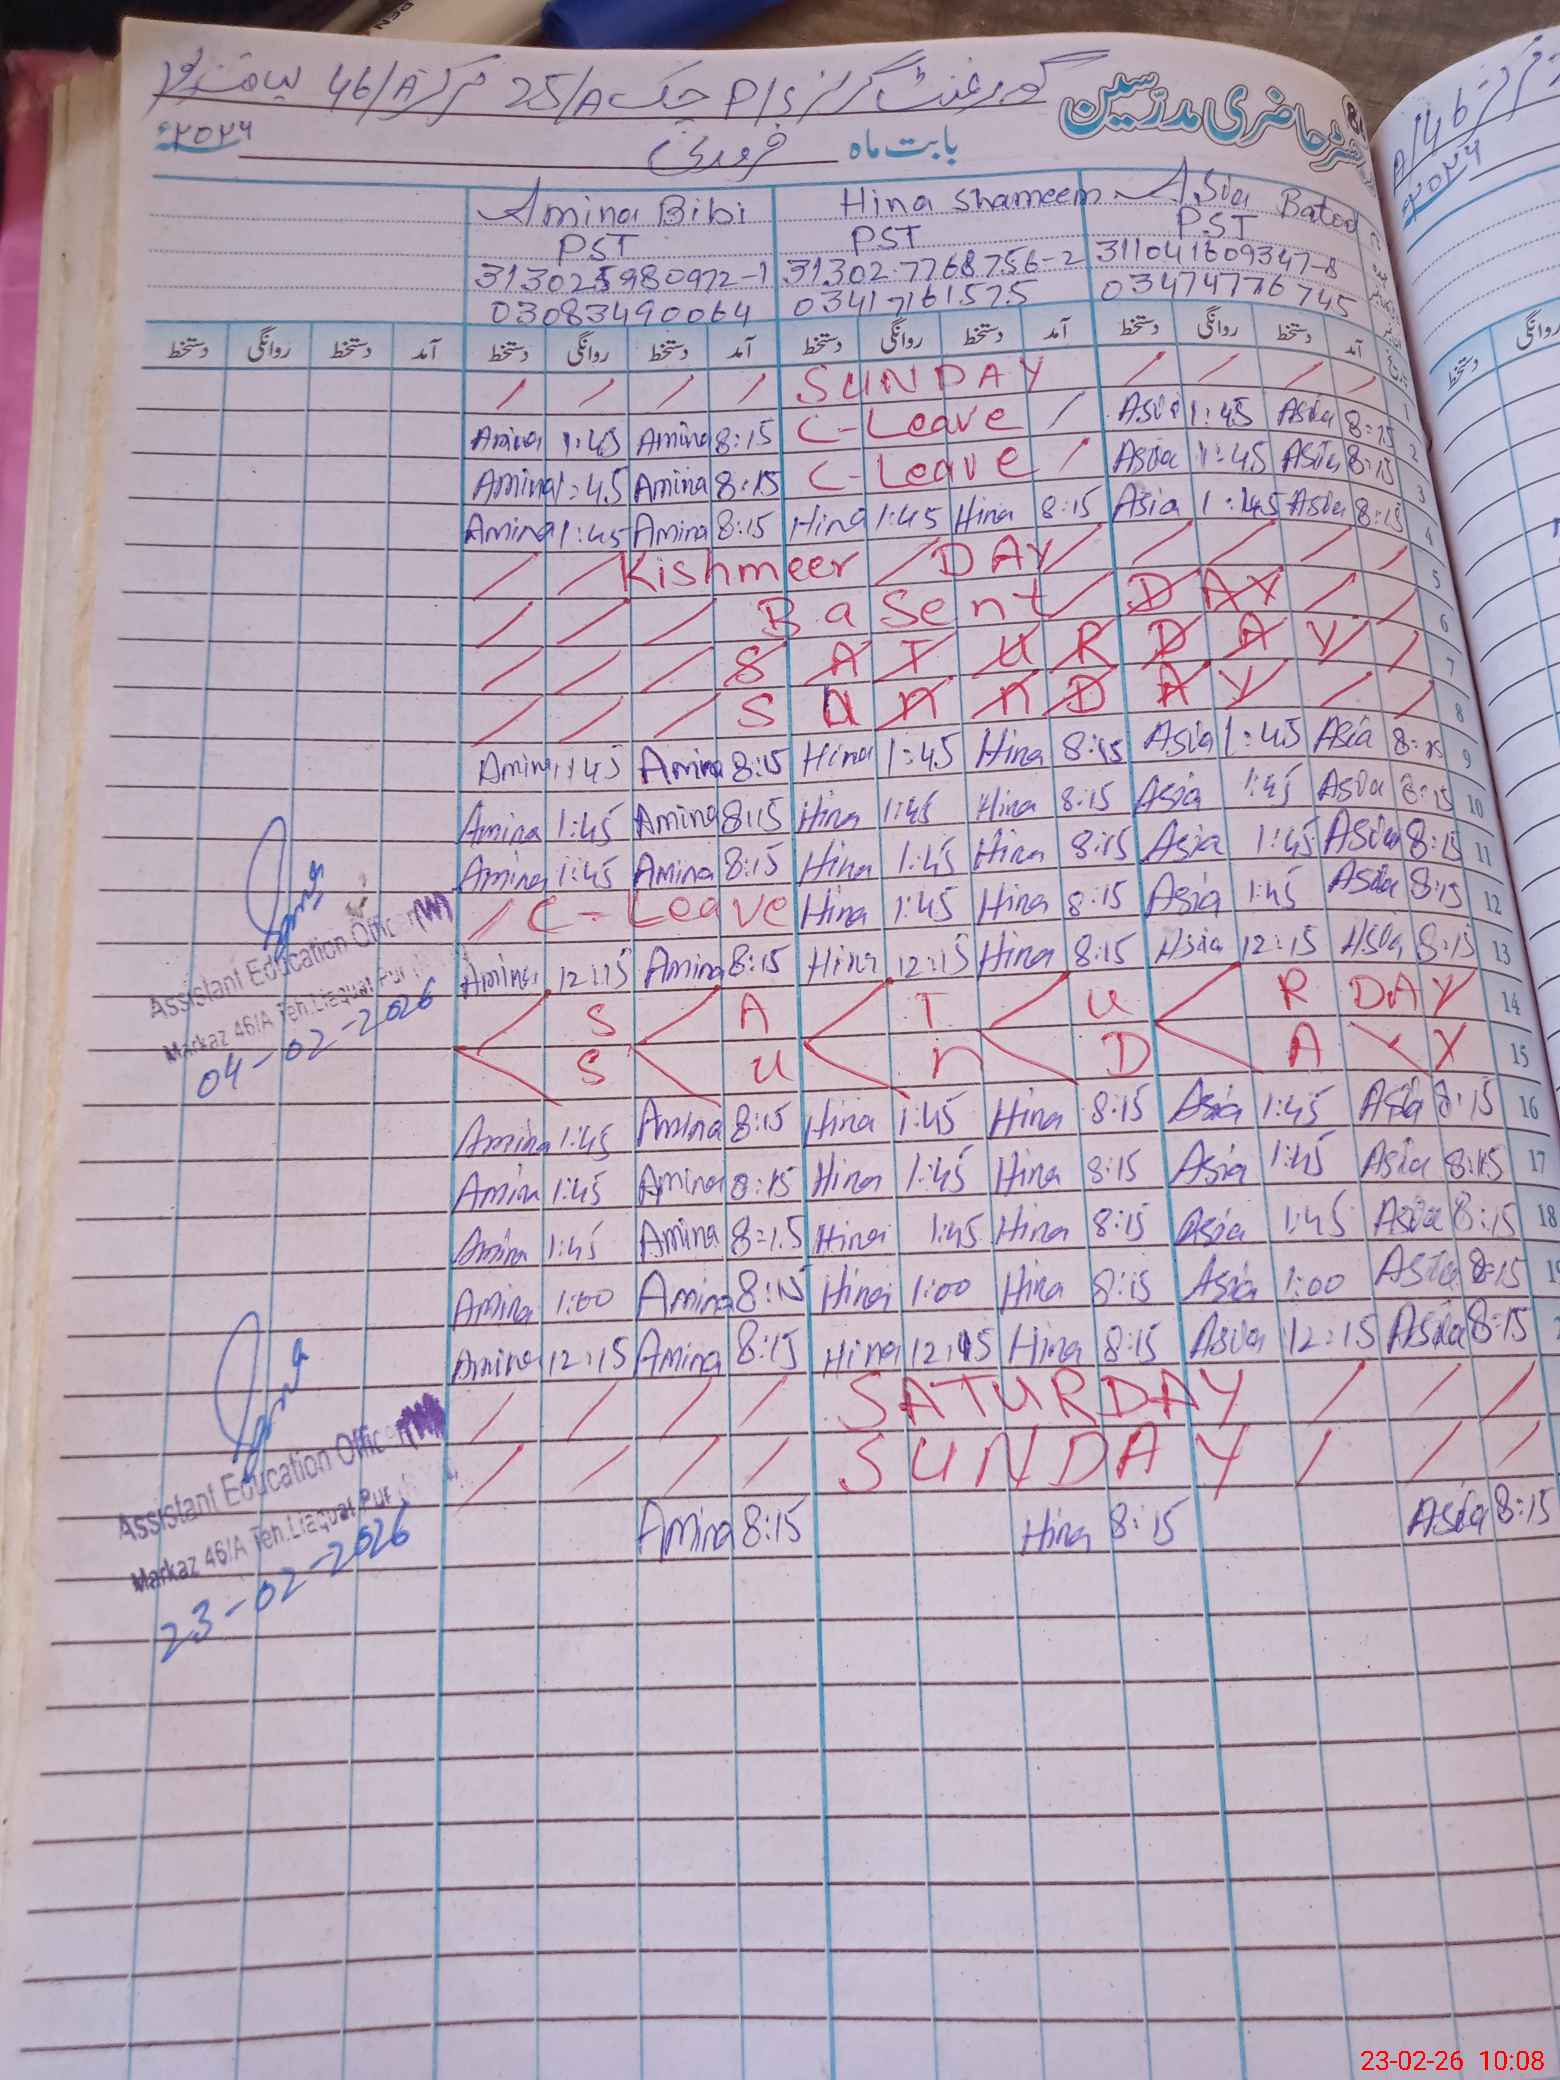 گورنمنٹ گرلز P/S چک 25/A مرکز 46/A لیاقت پور
رجسٹر حاضری مدرسین
بابت ماہ فروری ۲۰۲۶ء
Amina Bibi Hina Shameem Asia Batool
PST PST PST
313025980972-1 31302-7768756-2 311041609347-8
03083490064 03417161575 03474776745
آمد دستخط روانگی دستخط آمد دستخط روانگی دستخط آمد دستخط روانگی دستخط آمد دستخط روانگی دستخط
SUNDAY 1
Amina 1:45 Amina 8:15 C-Leave Asia 1:45 Asia 8:15 2
Amina 1:45 Amina 8:15 C-Leave Asia 1:45 Asia 8:15 3
Amina 1:45 Amina 8:15 Hina 1:45 Hina 8:15 Asia 1:45 Asia 8:15 4
Kishmeer DAY 5
Basent DAY 6
SATURDAY 7
SUNNDAY 8
Amina 1:45 Amina 8:15 Hina 1:45 Hina 8:15 Asia 1:45 Asia 8:15 9
Amina 1:45 Amina 8:15 Hina 1:45 Hina 8:15 Asia 1:45 Asia 8:15 10
Amina 1:45 Amina 8:15 Hina 1:45 Hina 8:15 Asia 1:45 Asia 8:15 11
C-Leave Hina 1:45 Hina 8:15 Asia 1:45 Asia 8:15 12
Amina 12:15 Amina 8:15 Hina 12:15 Hina 8:15 Asia 12:15 Asia 8:15 13
SATURDAY 14
SUNDAY 15
Assistant Education Officer (W)
Markaz 46/A Teh. Liaquat Pur
04-02-2026
Amina 1:45 Amina 8:15 Hina 1:45 Hina 8:15 Asia 1:45 Asia 8:15 16
Amina 1:45 Amina 8:15 Hina 1:45 Hina 8:15 Asia 1:45 Asia 8:15 17
Amina 1:45 Amina 8:15 Hina 1:45 Hina 8:15 Asia 1:45 Asia 8:15 18
Amina 1:00 Amina 8:15 Hina 1:00 Hina 8:15 Asia 1:00 Asia 8:15
Amina 12:15 Amina 8:15 Hina 12:15 Hina 8:15 Asia 12:15 Asia 8:15
SATURDAY
SUNDAY
Amina 8:15 Hina 8:15 Asia 8:15
Assistant Education Officer (W)
Markaz 46/A Teh. Liaquat Pur
23-02-2026
روانگی
دستخط
23-02-26 10:08